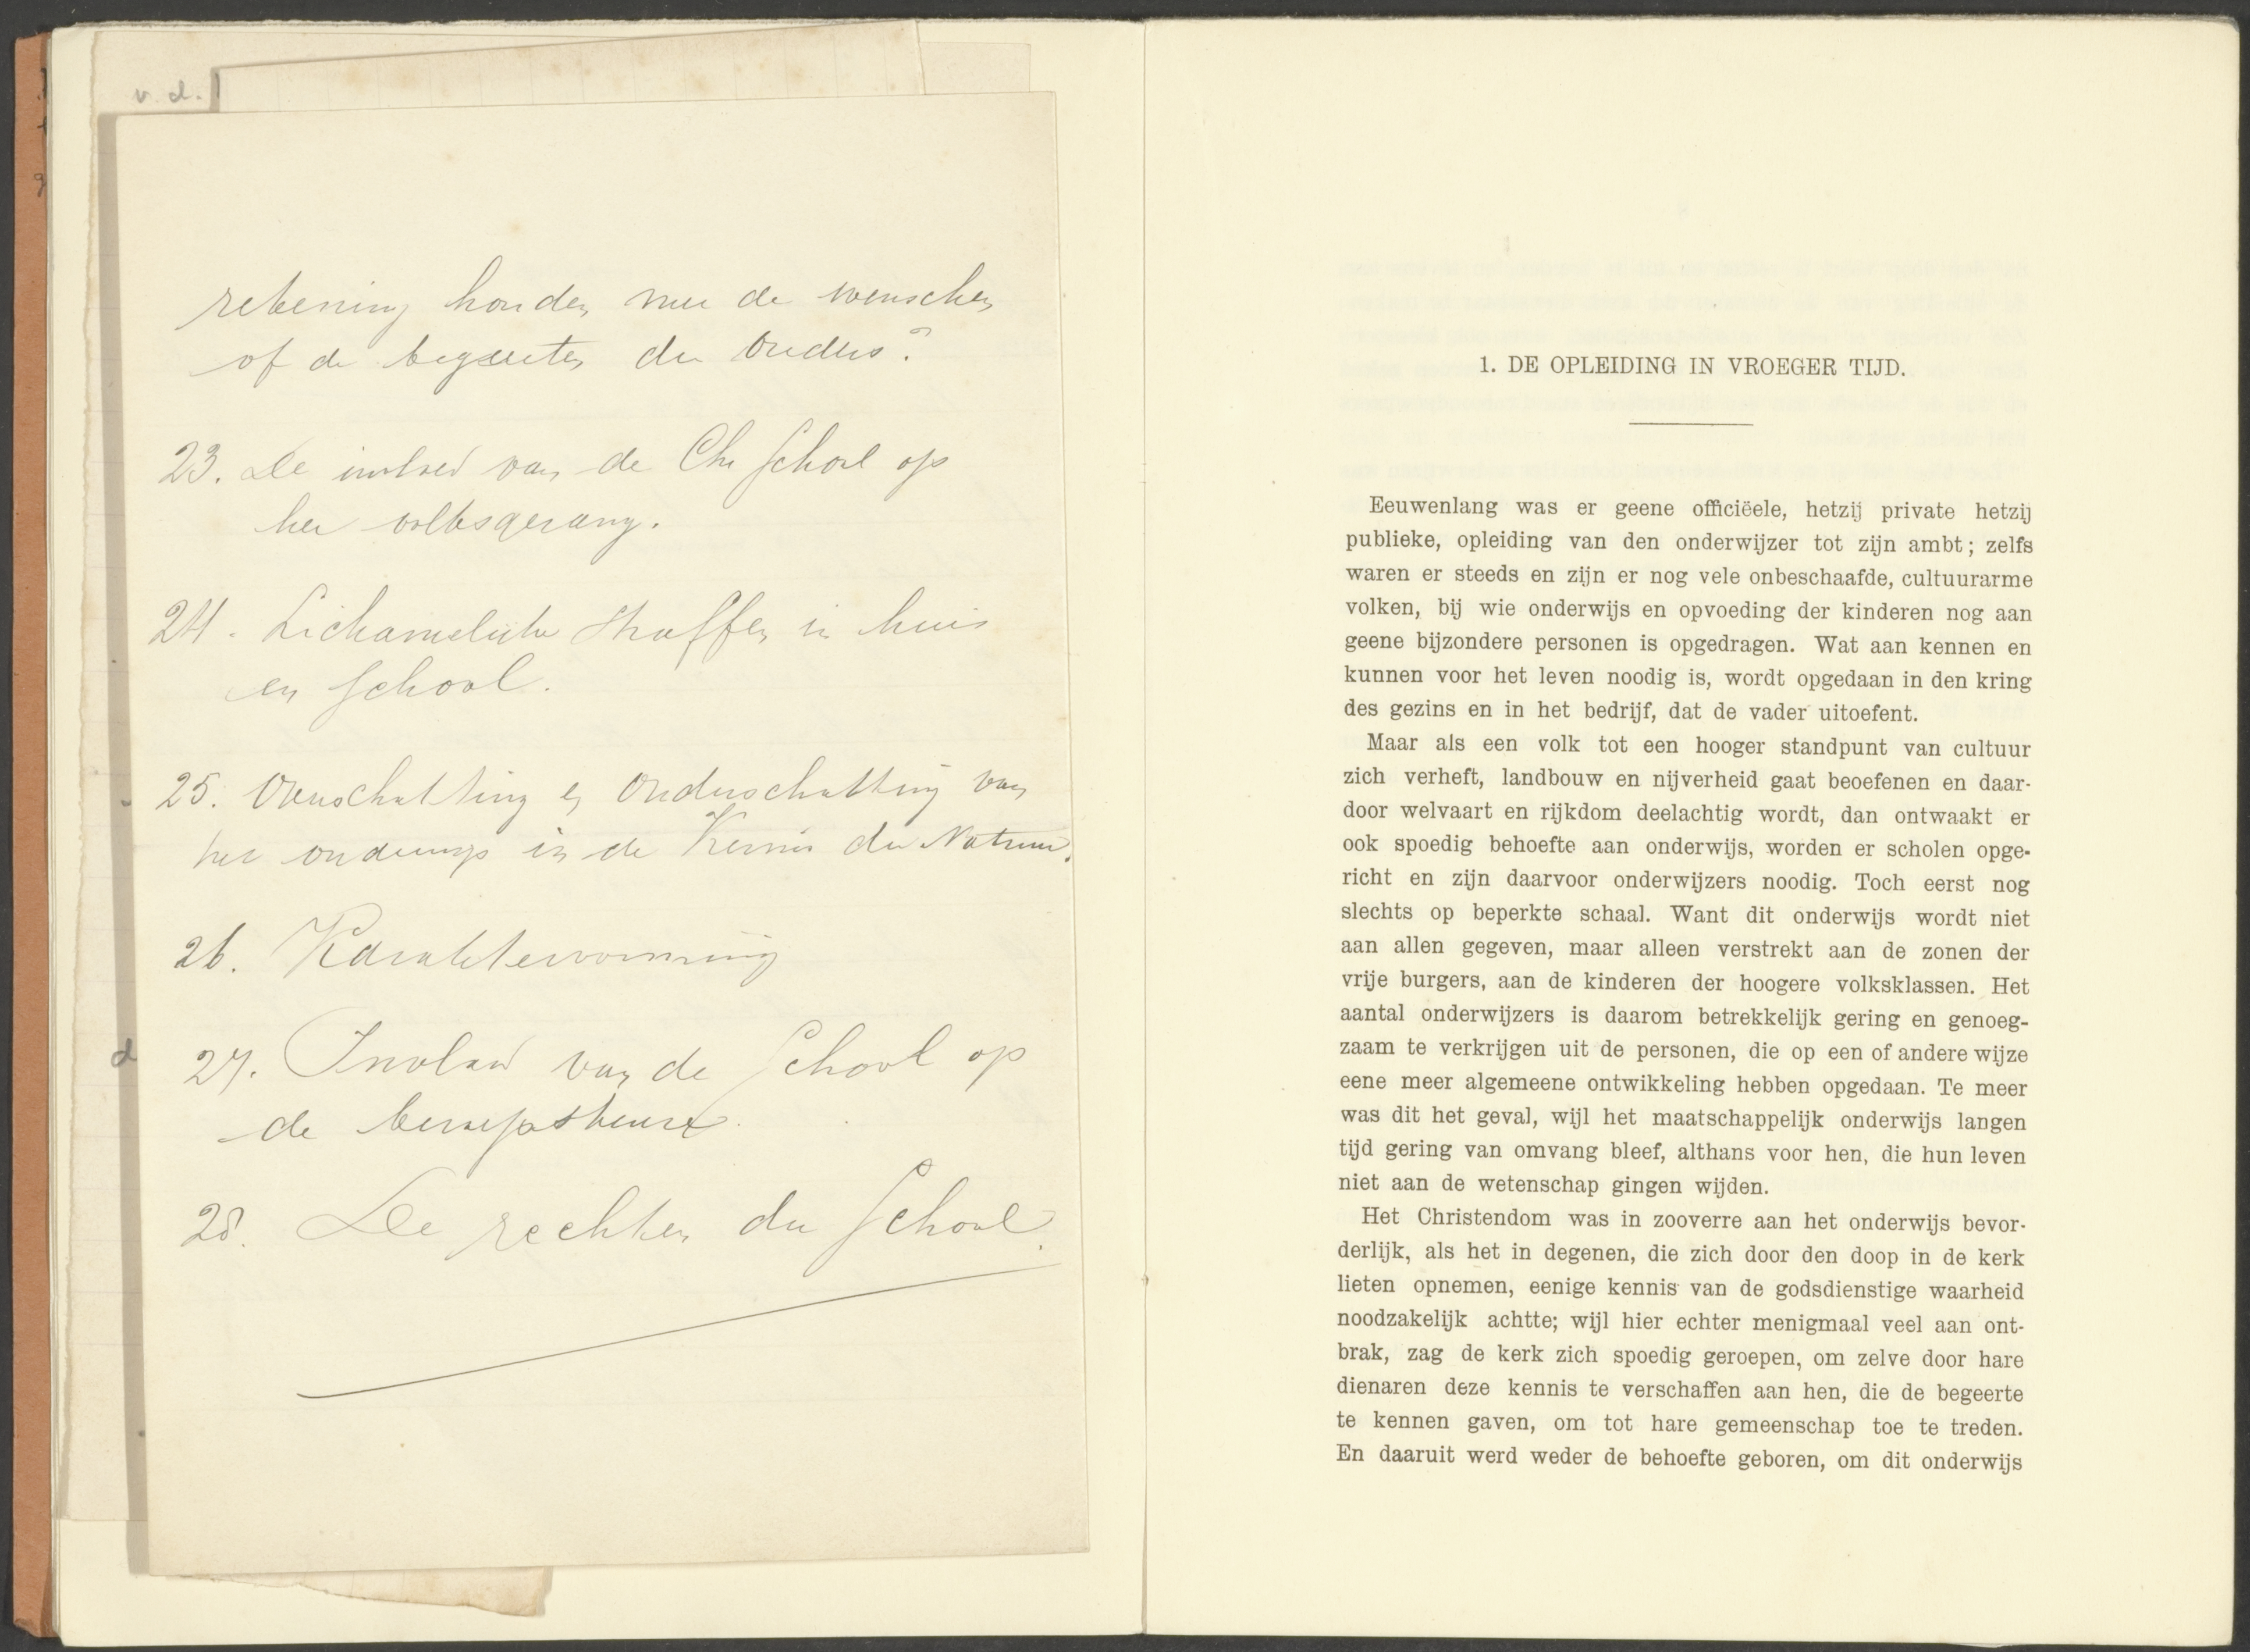 v. d.
rekening houden met de wenschen
of de begeerten der Ouders?
23. De invloed van de Chr School op
het volksgezang.
24. Lichamelijke straffen in huis
en School.
25. Overschatting en Onderschatting van
het onderwijs in de Kennis der Natuur.
26. Karaktervorming
27. Invloed van de School op
de beroepskeuze.
28. De rechten der School.
d
1. DE OPLEIDING IN VROEGER TIJD.
Eeuwenlang was er geene officiëele, hetzij private hetzij
publieke, opleiding van den onderwijzer tot zijn ambt; zelfs
waren er steeds en zijn er nog vele onbeschaafde, cultuurarme
volken, bij wie onderwijs en opvoeding der kinderen nog aan
geene bijzondere personen is opgedragen. Wat aan kennen en
kunnen voor het leven noodig is, wordt opgedaan in den kring
des gezins en in het bedrijf, dat de vader uitoefent.
Maar als een volk tot een hooger standpunt van cultuur
zich verheft, landbouw en nijverheid gaat beoefenen en daar-
door welvaart en rijkdom deelachtig wordt, dan ontwaakt er
ook spoedig behoefte aan onderwijs, worden er scholen opge-
richt en zijn daarvoor onderwijzers noodig. Toch eerst nog
slechts op beperkte schaal. Want dit onderwijs wordt niet
aan allen gegeven, maar alleen verstrekt aan de zonen der
vrije burgers, aan de kinderen der hoogere volksklassen. Het
aantal onderwijzers is daarom betrekkelijk gering en genoeg-
zaam te verkrijgen uit de personen, die op een of andere wijze
eene meer algemeene ontwikkeling hebben opgedaan. Te meer
was dit het geval, wijl het maatschappelijk onderwijs langen
tijd gering van omvang bleef, althans voor hen, die hun leven
niet aan de wetenschap gingen wijden.
Het Christendom was in zooverre aan het onderwijs bevor-
derlijk, als het in degenen, die zich door den doop in de kerk
lieten opnemen, eenige kennis van de godsdienstige waarheid
noodzakelijk achtte; wijl hier echter menigmaal veel aan ont-
brak, zag de kerk zich spoedig geroepen, om zelve door hare
dienaren deze kennis te verschaffen aan hen, die de begeerte
te kennen gaven, om tot hare gemeenschap toe te treden.
En daaruit werd weder de behoefte geboren, om dit onderwijs